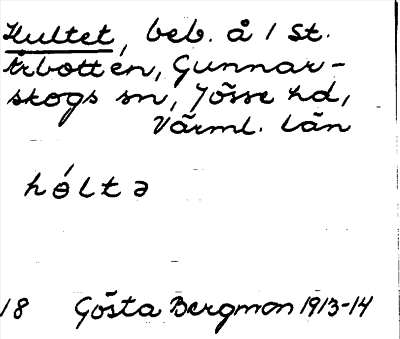 Hultet, beb. å 1 st.
Årbotten, Gunnar-
skogs sn, Jösse hd,
Värml. län
hɵ́ltə
18 Gösta Bergman 1913-14